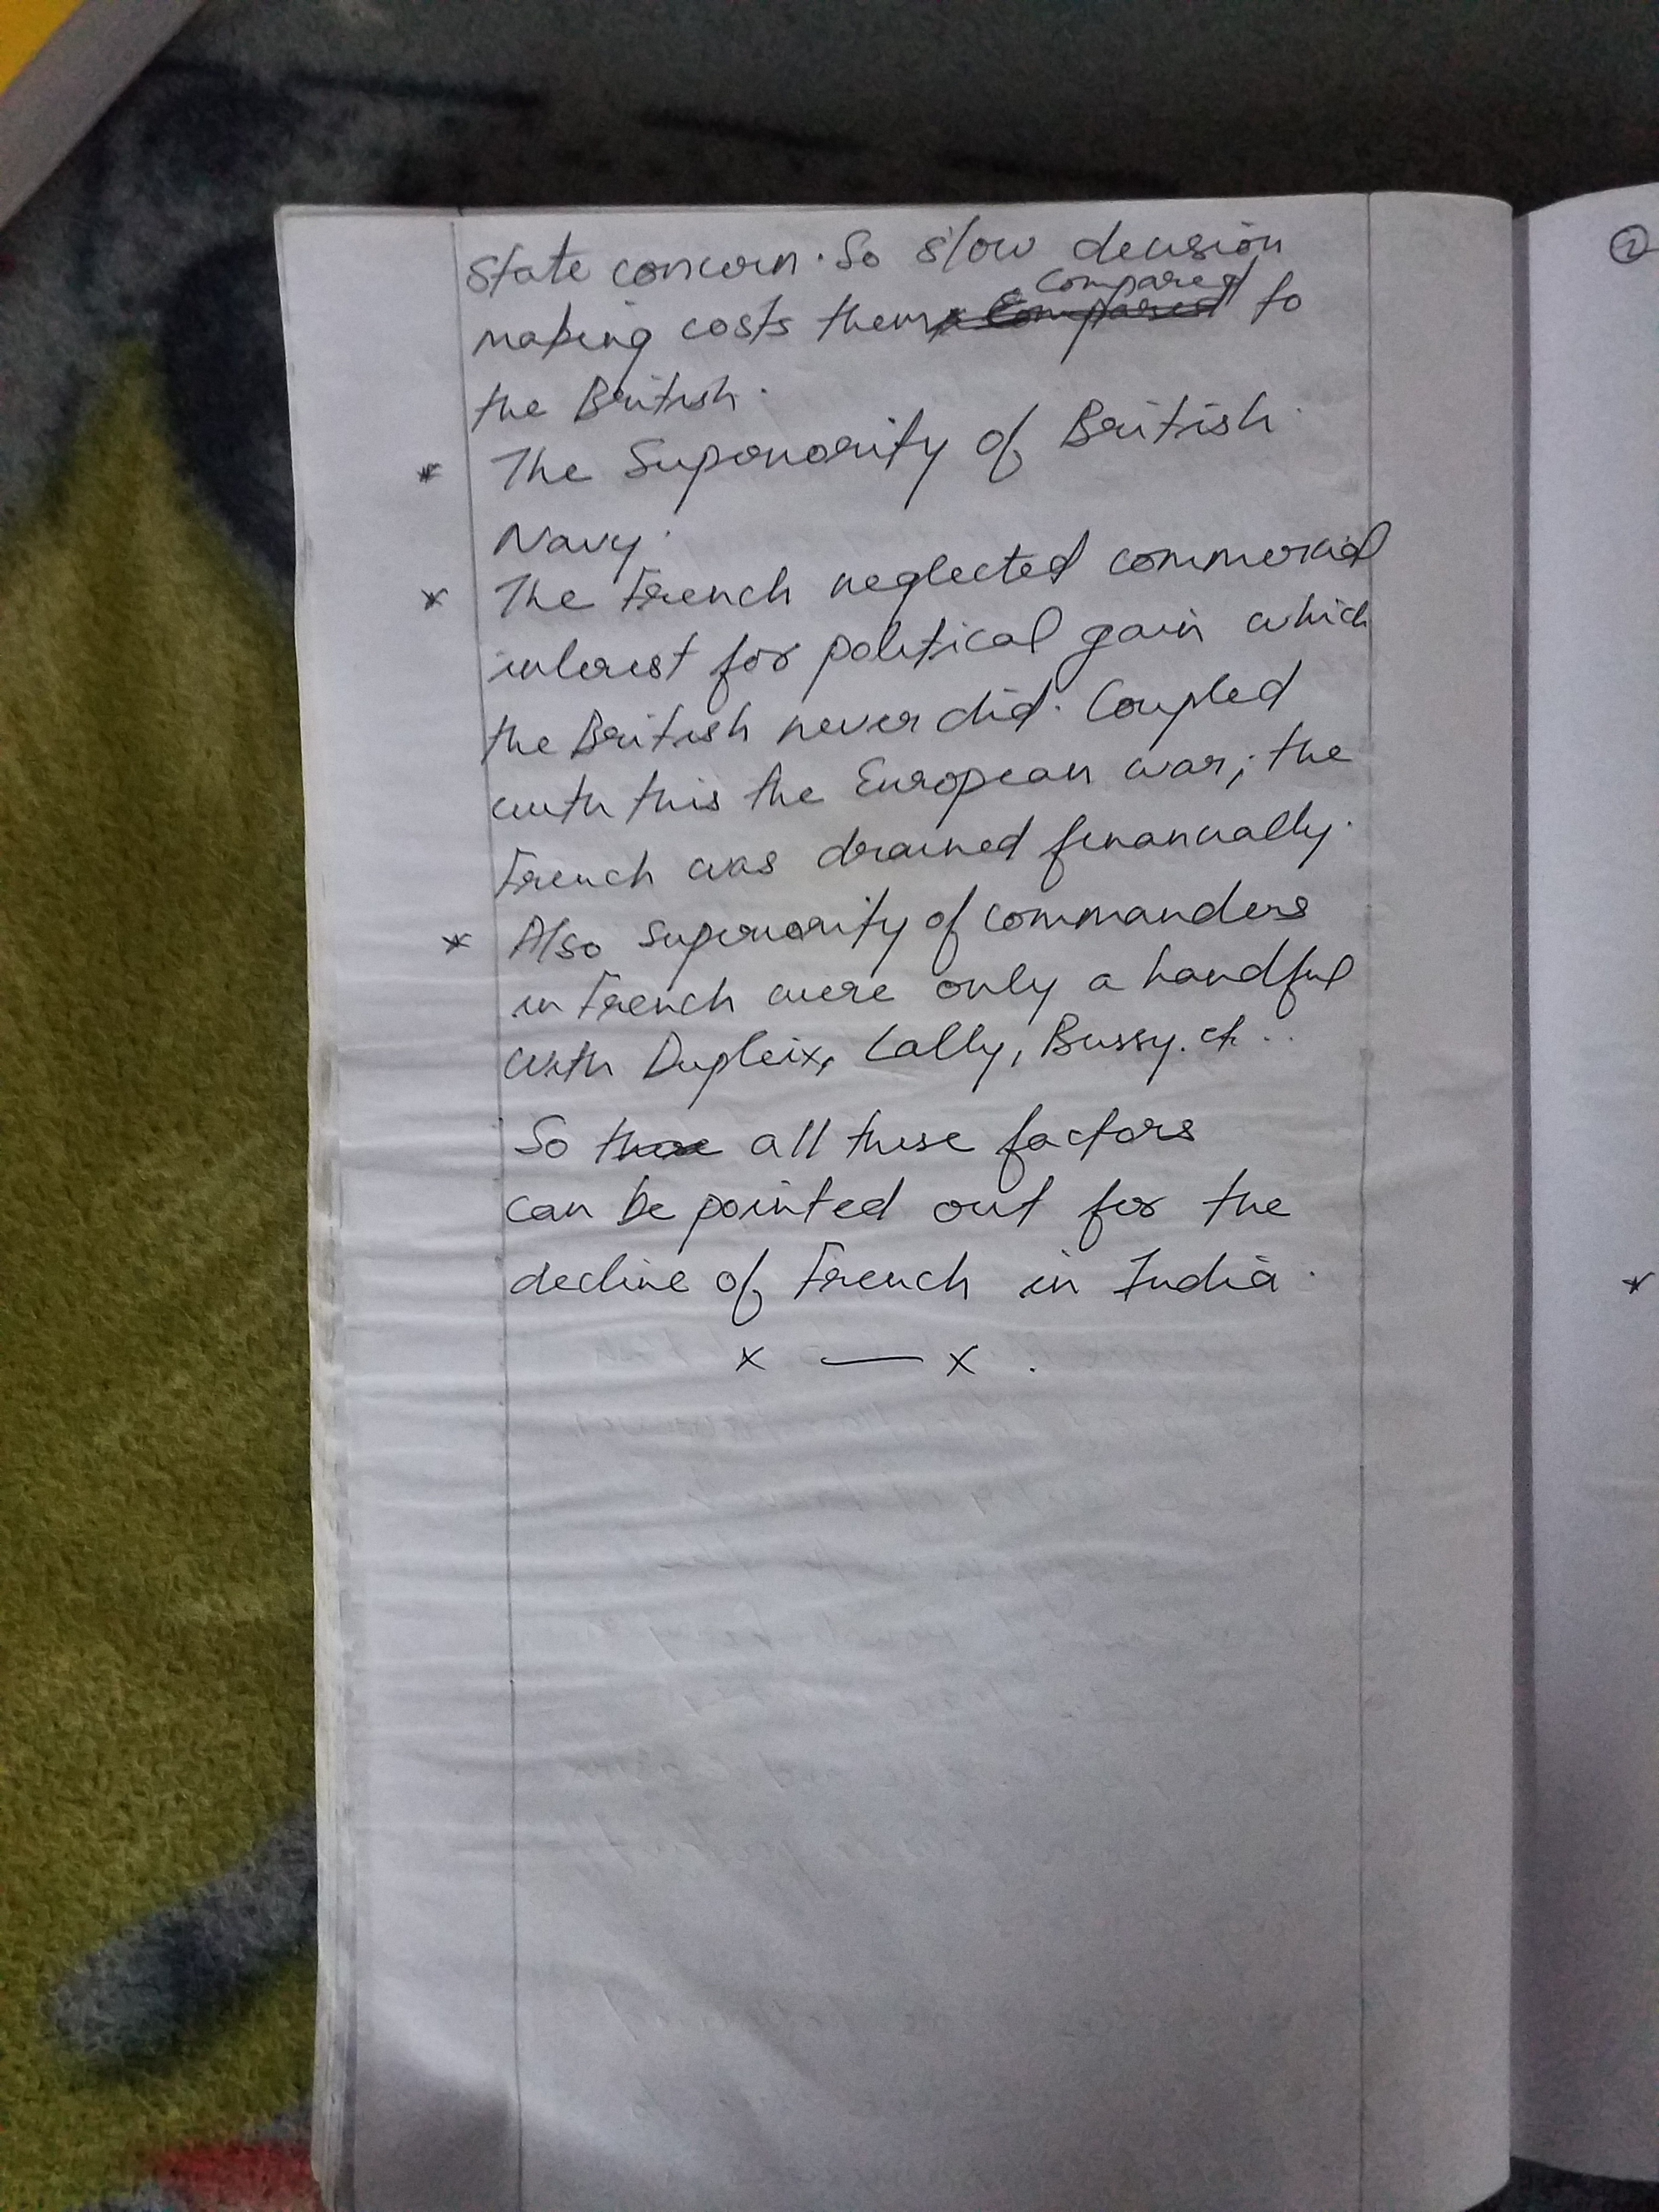 State concern. So slow decision
making costs them compared to
the British.
* The Superiority of British
Navy.
* The French neglected commercial
interest for political gain which
the British never did. Coupled
with this the European war, the
French was drained financially.
* Also superiority of commanders
in French were only a handful
with Dupleix, Lally, Bussy. etc..
So all these factors
can be pointed out for the
decline of French in India.
x — x .
2
*